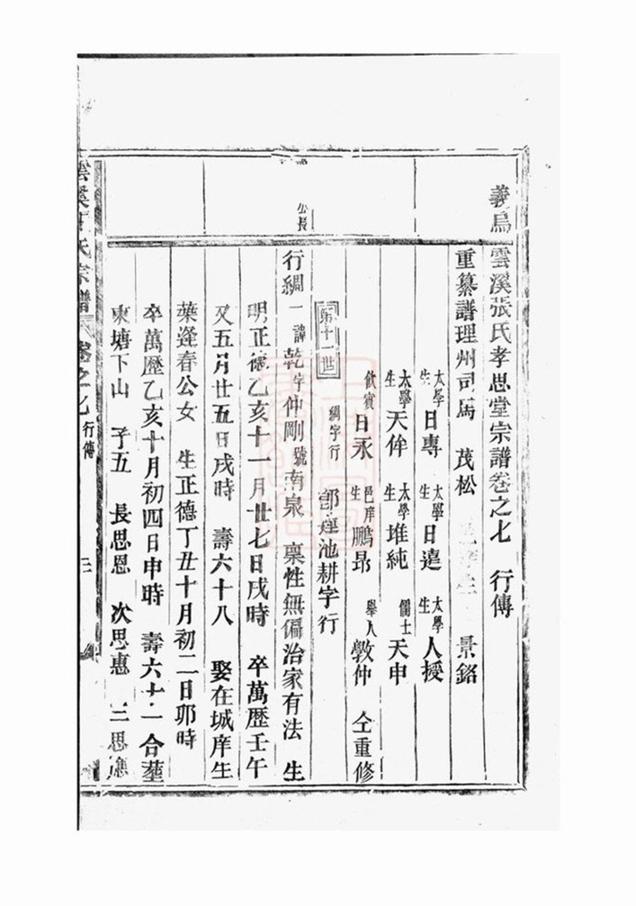 義烏雲溪張氏孝思堂宗譜卷之七 行傳
重纂譜理州司馬 茂松 景銘
太學生日專 太學生日 太學生人授
太學生天侔 太學生堆純 儒士天申
飲賓日永 邑庠生鵬昂 舉人敦仲 仝重修
第十一世 綢字行 郎蓮池耕字行
公長
行綢一 諱乾字仲剛號南泉 稟性無偏治家有法 生
明正德乙亥十一月廿七日戌時 卒萬歷壬午
又五月廿五日戌時 壽六十八 娶在城庠生
葉逢春公女 生正德丁丑十月初二日卯時
卒萬歷乙亥十月初四日申時 壽六十一合塟
東塘下山 子五 長思恩 次思惠 三思
雲溪張氏宗譜 卷之七 行傳